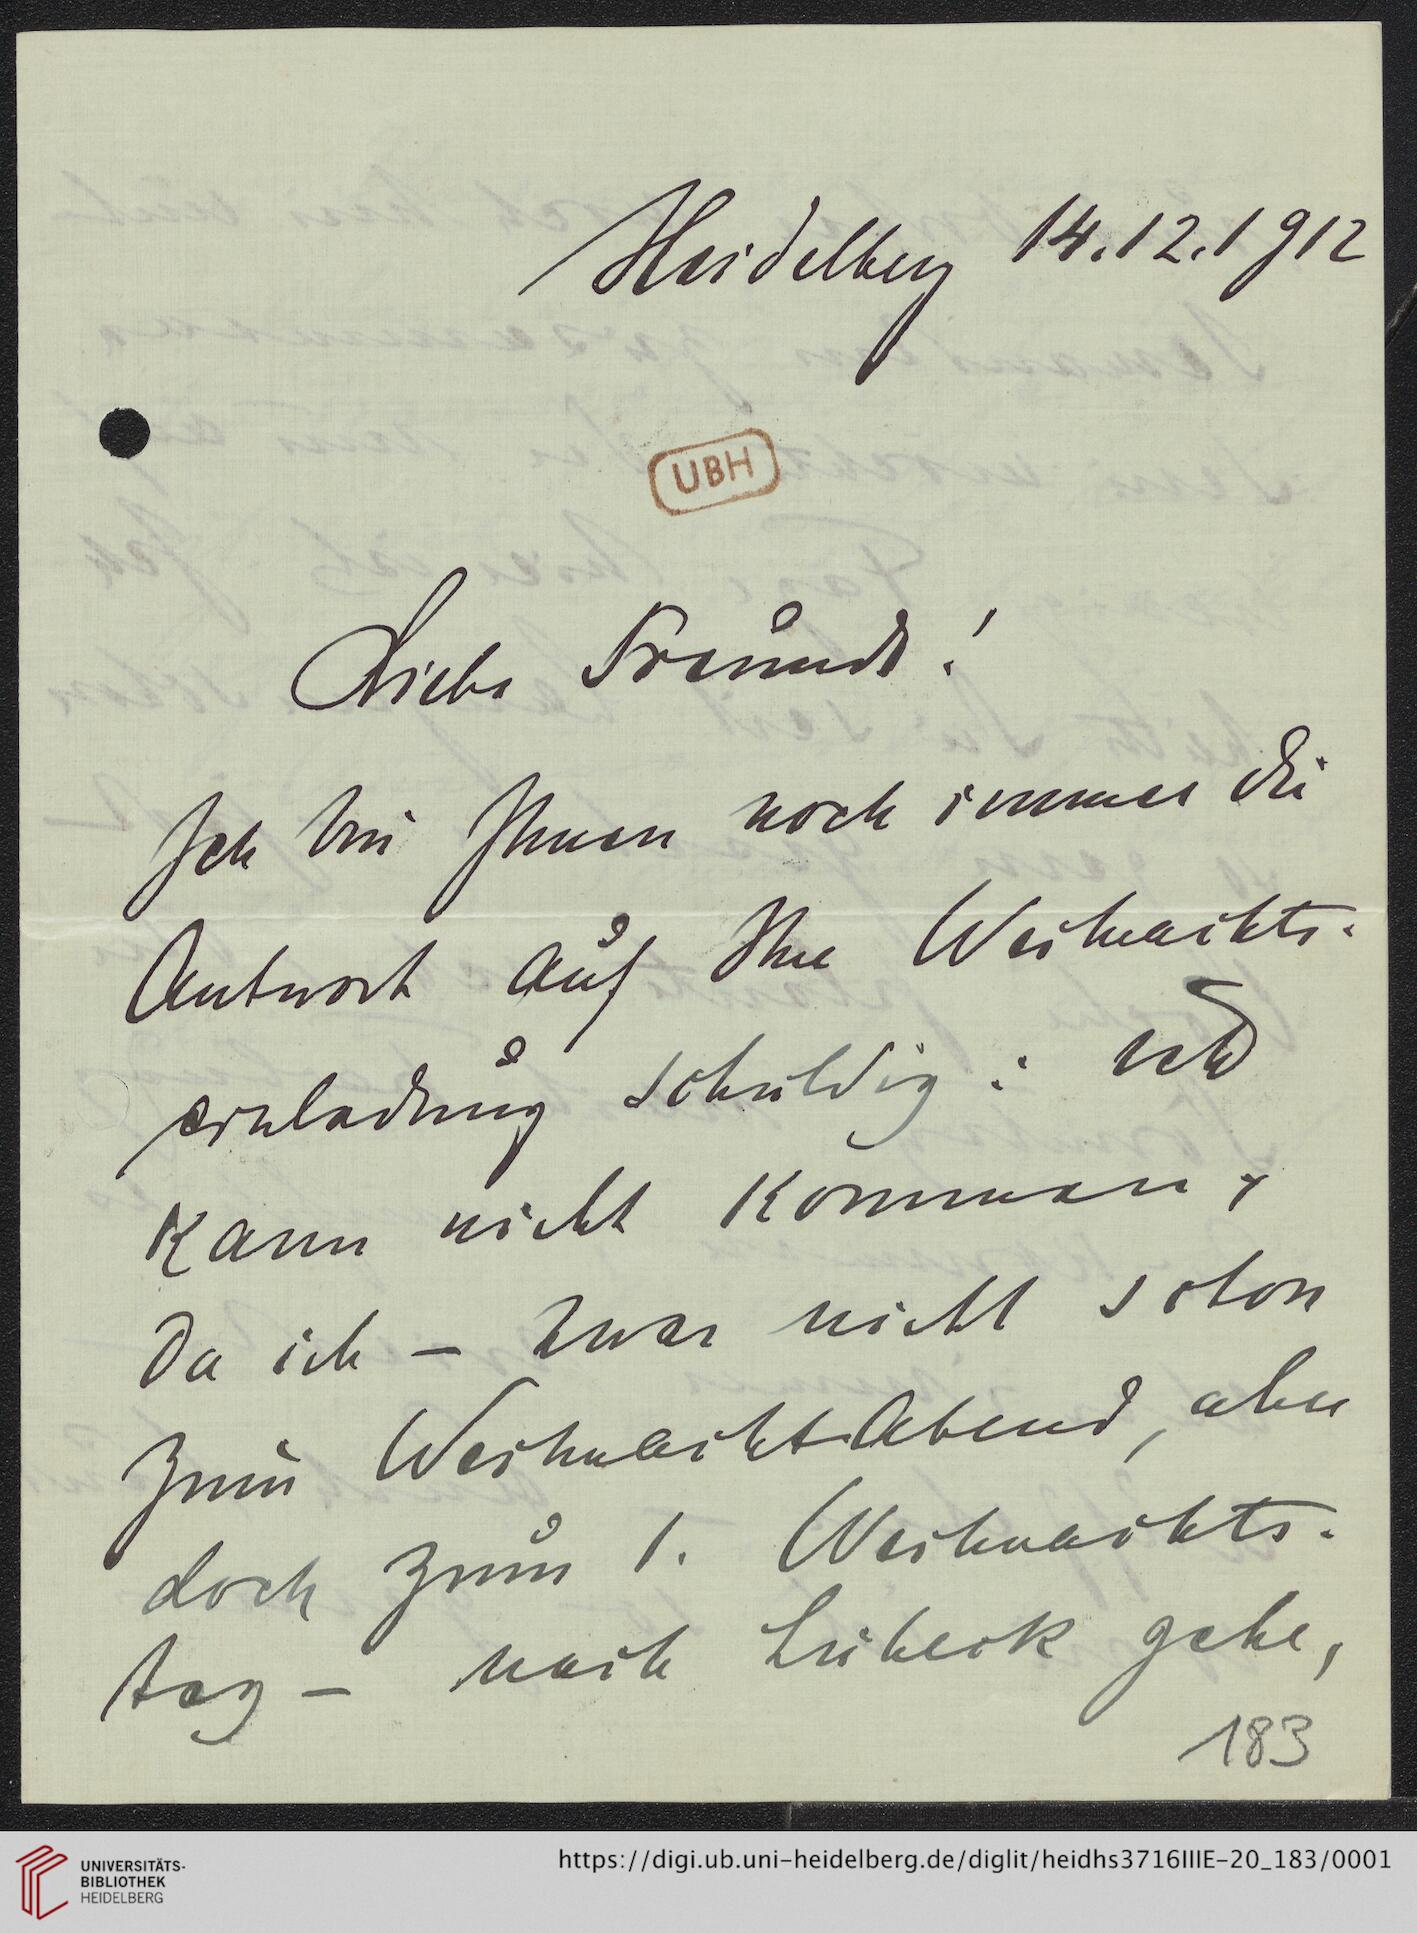 Heidelberg 14.12.1912
UBH
Liebe Freunde!
Ich bin Ihnen noch immer die
Antwort auf Ihre Weihnachts-
einladung schuldig: ich
kann nicht kommen,
da ich – zwar nicht schon
zum Weihnachtsabend, aber
doch zum 1. Weihnachts-
tag – nach Lübeck gehe,
183
UNIVERSITÄTS-
BIBLIOTHEK
HEIDELBERG
https://digi.ub.uni-heidelberg.de/diglit/heidhs3716IIIE-20_183/0001